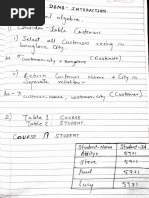 DBMS - INTERACTION.
algebra.
1) Consider table Customer
i) Select all Customers residing in
banglore City.
city = banglore (Customer)
ii) Return Customer name & City in
Separate relation.
customer name, city (Customer).
2) Table 1 COURSE
Table 2 STUDENT.
COURSE ∩ STUDENT
Student-Name Student-Id
Aditya 5921
Steve 5921
Paul 5921
Lucy 5931